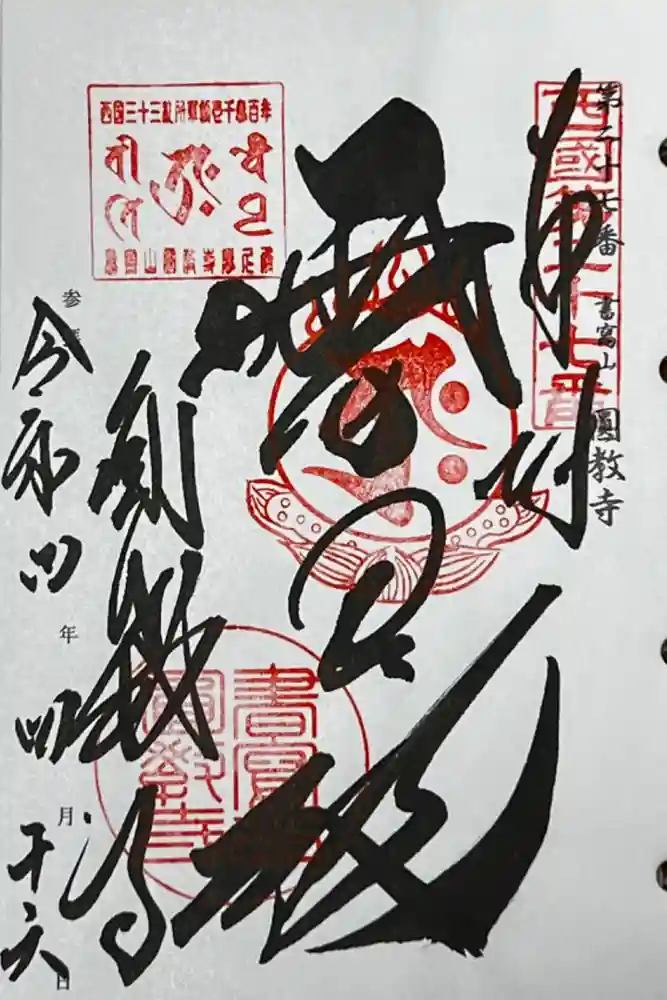 第二十七番 書寫山 圓教寺
西國第二十七番
奉拝
西国三十三所草創壱千参百年
摩尼殿
書寫山
圓教寺
圓教寺
参拝
令和四年四月十六日